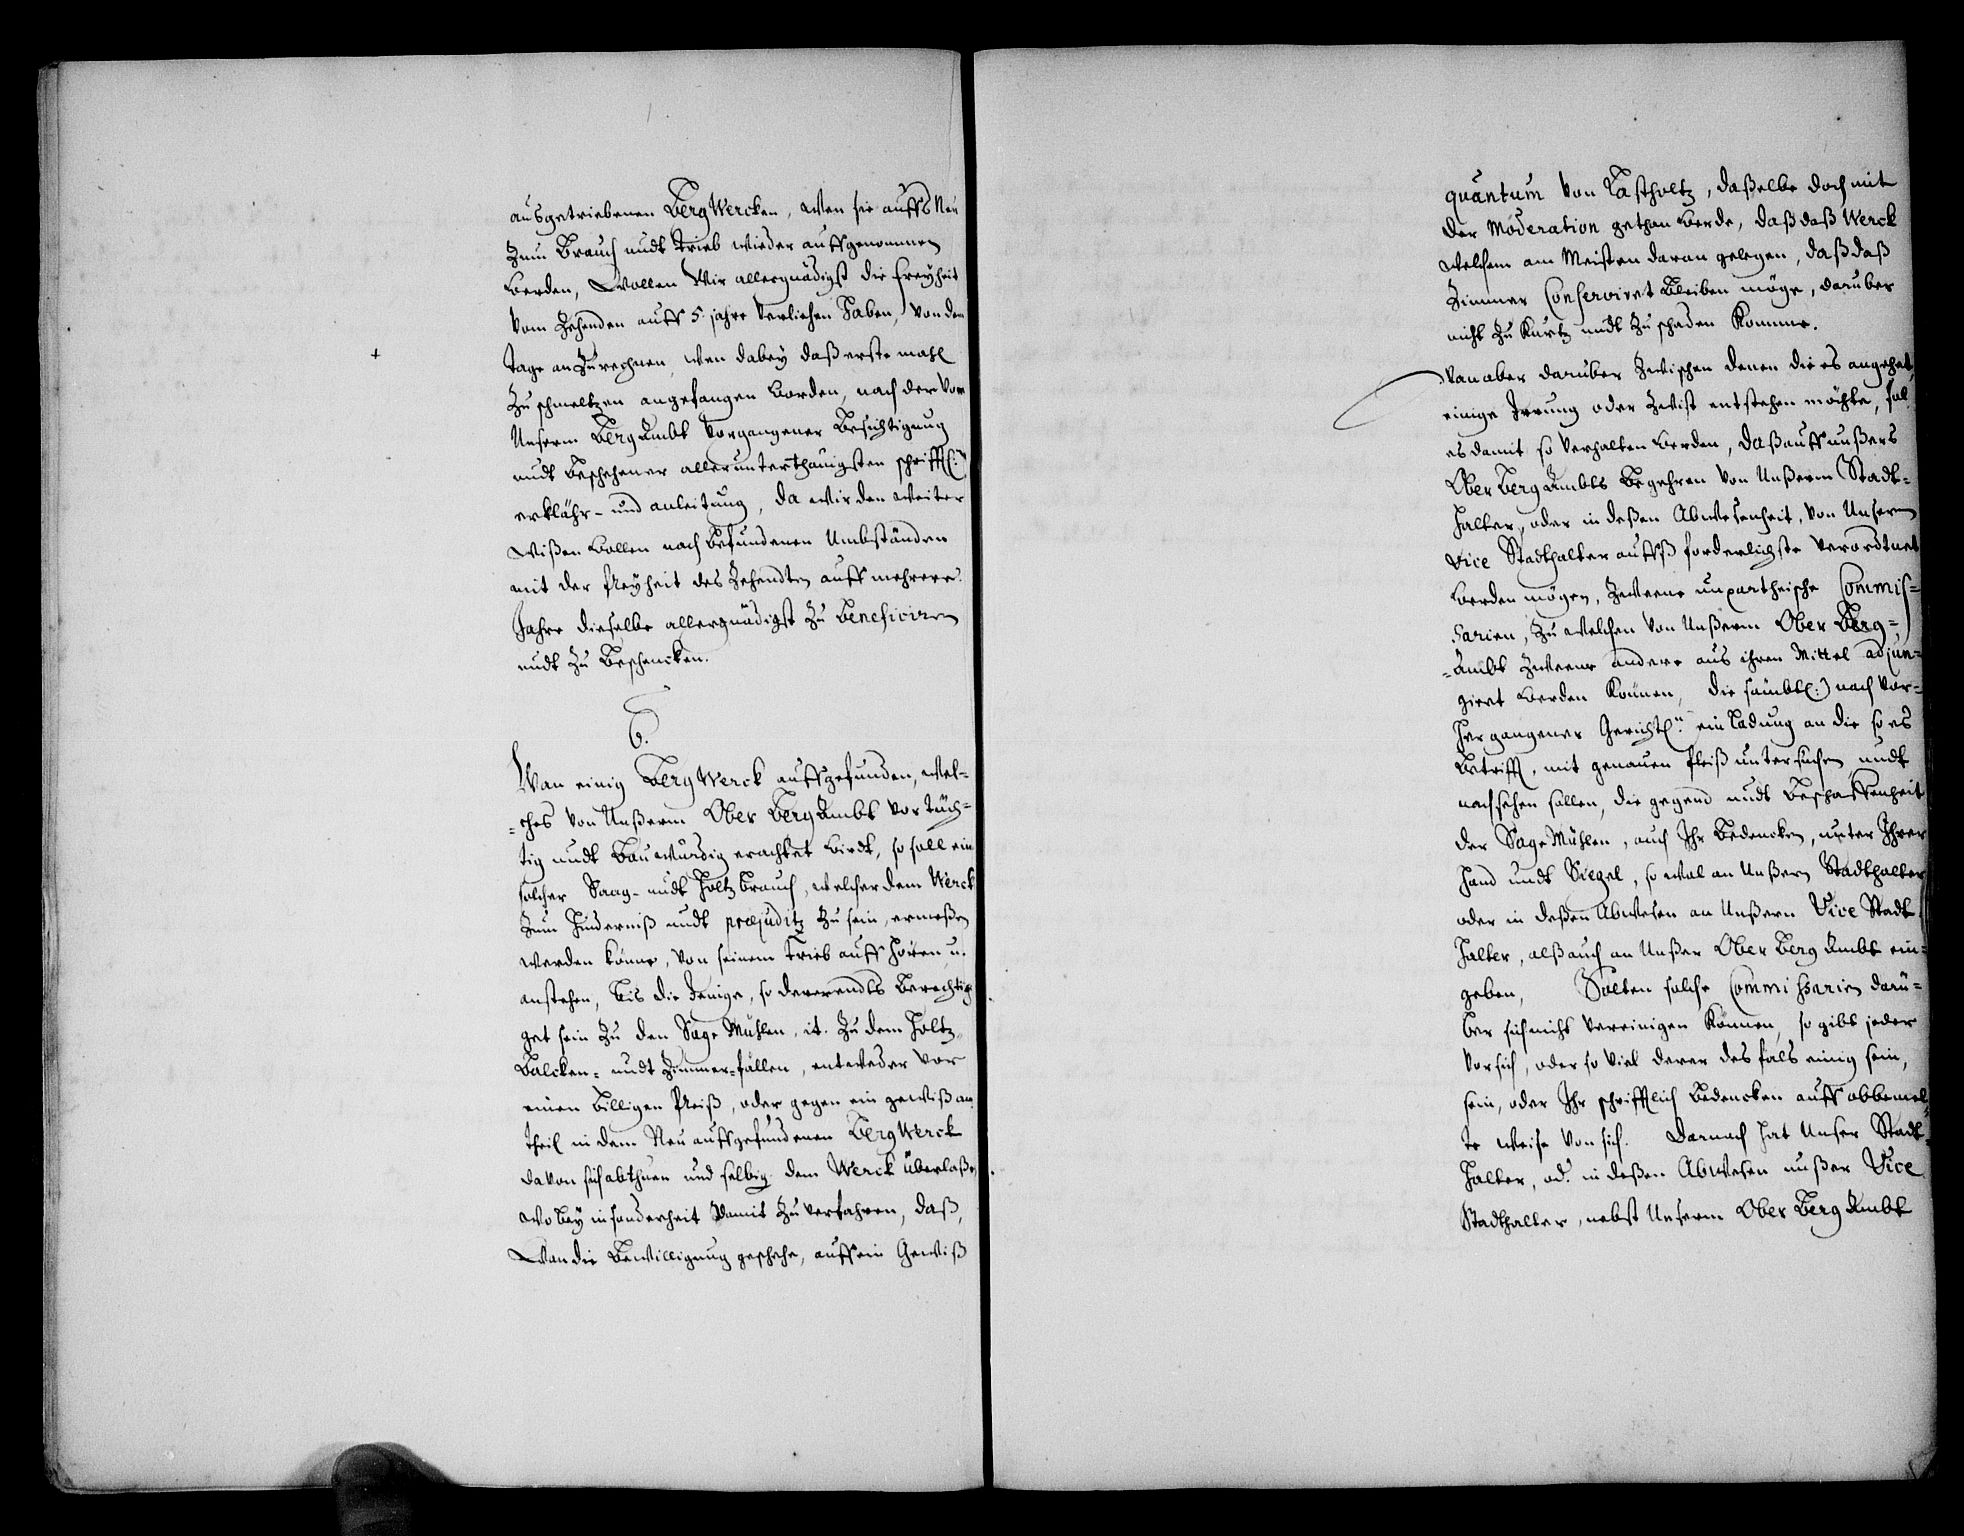 ausgetriebenen BergWercken, wen sie auffs Neu
Zum Brauch undt Trieb wieder auffgenommen
Werden, Wollen Wir allergnädigst die Freyheit
Vom Zehenden auff 5. jahre Verliehen haben, Von dem
tage an Zu rechnen, wen dabey daß erste mahl
Zu schmeltzen angefangen Worden, nach der Von
Unserm BergAmbt Vorgangener Besichtigung
undt Beschehener allerunterthänigsten schrifftl:
erklähr- und anleitung, da wir den weiter
Wißen Wollen nach Befundenen Umbständen
mit der freyheit des Zehendten auff mehrere
Jahre dieselbe allergnädigst Zu Beneficiren
undt Zu Beschencken.
6.
Wan einig BergWerck auffgefunden, wel-
ches Von Unßerm Ober BergAmbt Vor tüch-
tig undt Bauwürdig erachtet Wirdt, so soll ein
solcher Saag- undt Holtz brauch, welcher dem Werck
Zum Hinderniß undt præjuditz Zu sein, ermeßen
werden könne, Von seinem Trieb auff hören u.
anstehen, bis die Jenige, so dererendts Berechti-
get sein Zu den Sage Mühlen, it. Zu dem Holtz,
Balcken- undt Zimmer-fällen, entweder Vor
einen Billigen Preiß, oder gegen ein gewiß an-
theil in dem Neu auffgefundenen BergWerck
davon sich abthuen und selbig dem Werck überlaßen
wo bey in sonderheit damit Zu verfahren, daß,
Wan die Bewilligung geschehe, auff ein Gewiß
quantum Von Rastholtz, daßelbe doch mit
der Moderation gethan Werde, daß daß Werck
welchem am Meisten daran gelegen, daß daß
Zimmer Conserviret Bleiben möge, daruber
nicht Zu Kurtz undt Zu schaden Komme.
Wan aber daruber Zwischen denen die es angehet,
einige Irrung oder Zwist entstehen möchte, sol
es damit so Verhalten Werden, daß auff unßers
Ober BergAmbts Begehren Von Unßerm Stadt-
halter, oder in deßen Abwesenheit, Von Unserm
Vice Stadthalter auffs forderlichste Verordtnet
Werden mögen, Zweene unpartheische Commis-
sarien, Zu welchen Von Unßerm Ober Berg-
Ambt Zweene andere aus ihren Mittel adjun-
giret Werden Können, die sämbtl: nach Vor-
hergangener Gerichtl: einladung an die so es
Betrifft, mit genauen fleiß untersuchen undt
nachsehen sollen, die gegend undt Beschaffenheit
der Sage Mühlen, auch Ihr Bedencken, unter Ihrer
Hand undt Siegel, so wol an Unßern Stadthalter
oder in deßen Abwesen an Unßern Vice Stadt-
halter, alß auch an Unßer Ober BergAmbt ein-
geben, Solten solche Commissarien darü-
ber sich nicht Vereinigen Können, so gibt jeder
Vor sich, oder so Viel derer des fals einig sein,
sein, oder Ihr schrifftlich Bedencken auff obbemel-
te weise Von sich. Darnach hat Unser Stadt-
halter, od. in deßen Abwesen unßer Vice
Stadthalter, nebst Unserm Ober BergAmbt